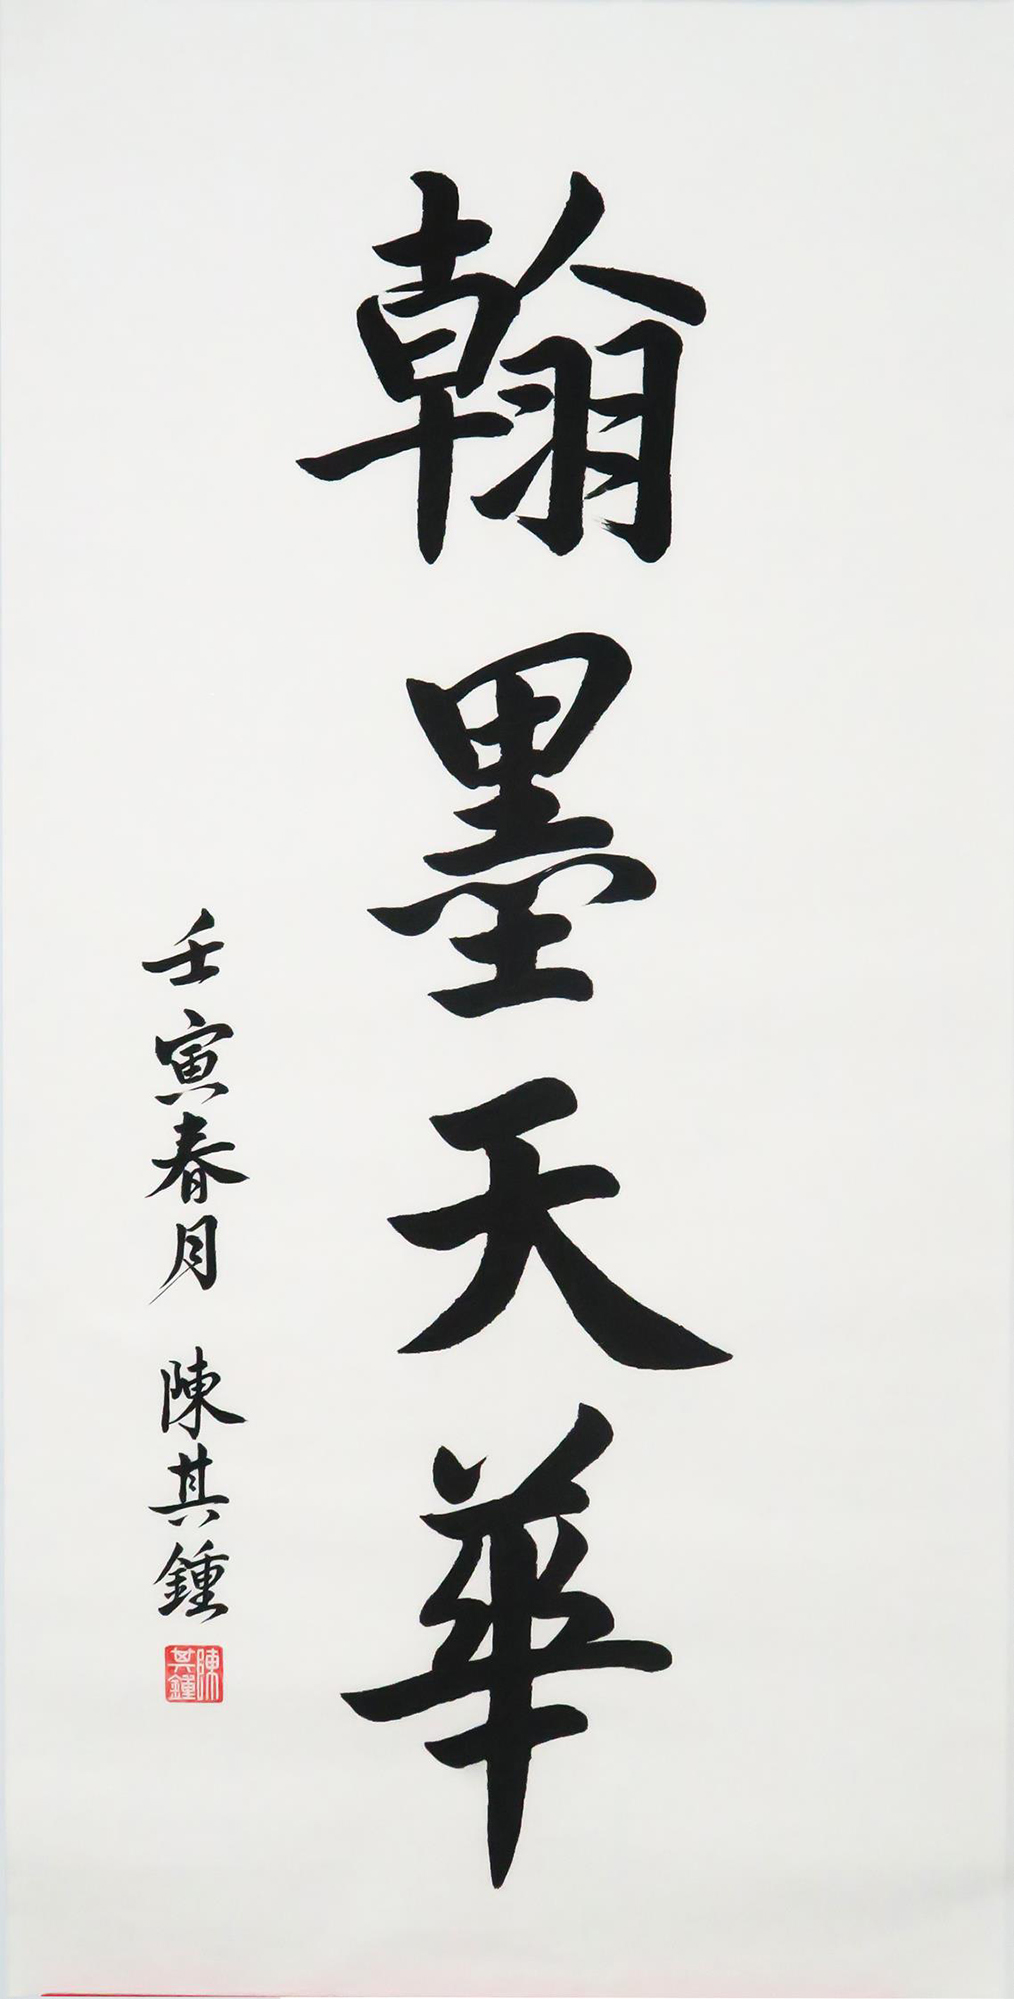 翰墨天華
壬寅春月 陳其鍾
陳其鍾